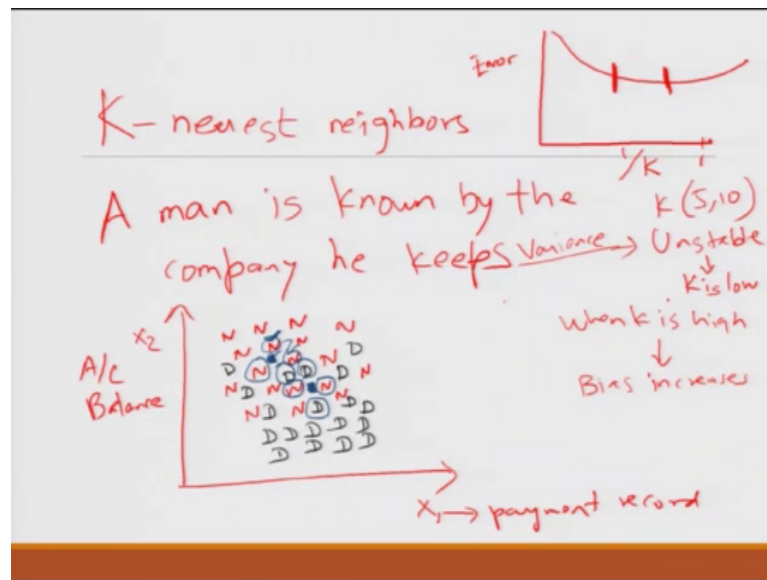 Error
K- nearest neighbors
1/K 1
A man is known by the
company he keeps
K (5,10)
Variance → Unstable
↓
K is low
When k is high
↓
Bias increases
x2
A/c
Balance
N N N N
N N N N D
D N D D D N
N D N N N N
N D N D D D
D D D D D
D D D D
x1 → payment record